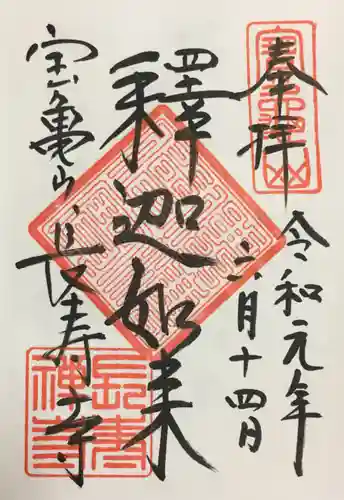 奉拝
令和元年
六月十四日
釋迦如来
宝亀山
長寿寺
長寿禅寺